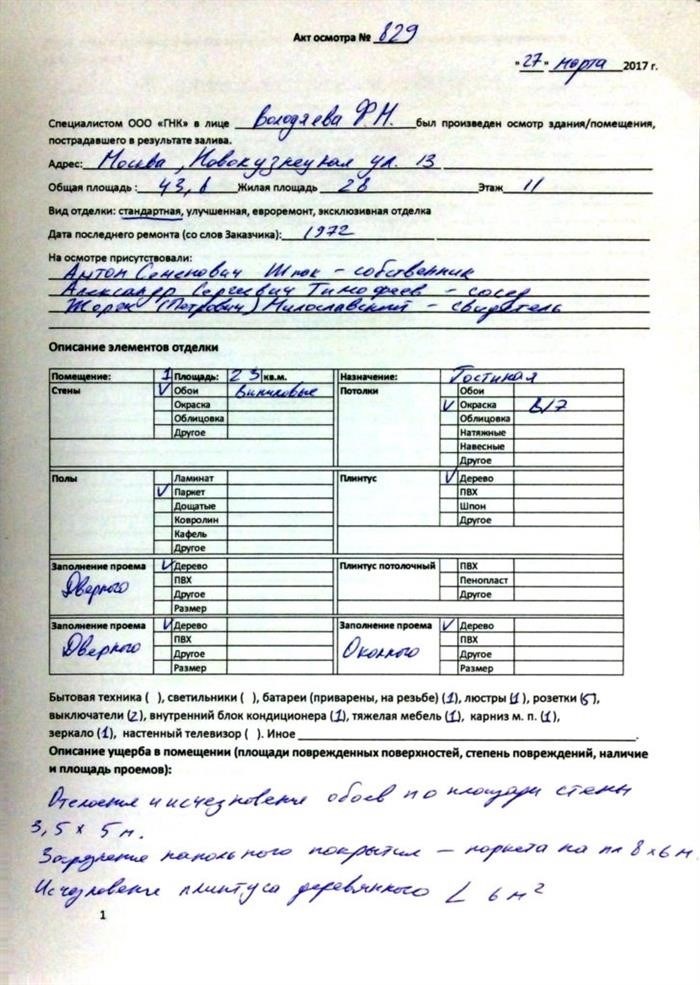 Акт осмотра № 829
"27" марта 2017 г.
Специалистом ООО «ГНК» в лице Володяева Ф.М. был произведен осмотр здания/помещения,
пострадавшего в результате залива.
Адрес: Москва, Новокузнецкая ул. 13
Общая площадь : 43,1 Жилая площадь 28 Этаж 11
Вид отделки: стандартная, улучшенная, евроремонт, эксклюзивная отделка
Дата последнего ремонта (со слов Заказчика): 1972
На осмотре присутствовали:
Антон Семенович Шпак - собственник
Александр Сергеевич Тимофеев - сосед
Жорж (Петрович) Милославский - свидетель
Описание элементов отделки
Помещение: 1 Площадь: 23 кв.м. Назначение: Гостиная
Стены V Обои виниловые Потолки Обои
Окраска V Окраска в/э
Облицовка Облицовка
Другое Натяжные
Навесные
Другое
Полы Ламинат Плинтус V Дерево
V Паркет ПВХ
Дощатые Шпон
Ковролин Другое
Кафель
Другое
Заполнение проема V Дерево Плинтус потолочный ПВХ
Дверного ПВХ Пенопласт
Другое Другое
Размер
Заполнение проема V Дерево Заполнение проема V Дерево
Дверного ПВХ Оконного ПВХ
Другое Другое
Размер Размер
Бытовая техника ( ), светильники ( ), батареи (приварены, на резьбе) (1), люстры (1), розетки (5),
выключатели (2), внутренний блок кондиционера (1), тяжелая мебель (1), карниз м. п. (1),
зеркало (1), настенный телевизор ( ). Иное
Описание ущерба в помещении (площади поврежденных поверхностей, степень повреждений, наличие
и площадь проемов):
Отслоение и исчезновение обоев по площади стены
3,5 х 5 м.
напольного покрытия - паркета на пл 8х6 м.
Исчезновение плинтуса деревянного L 6 м2
1